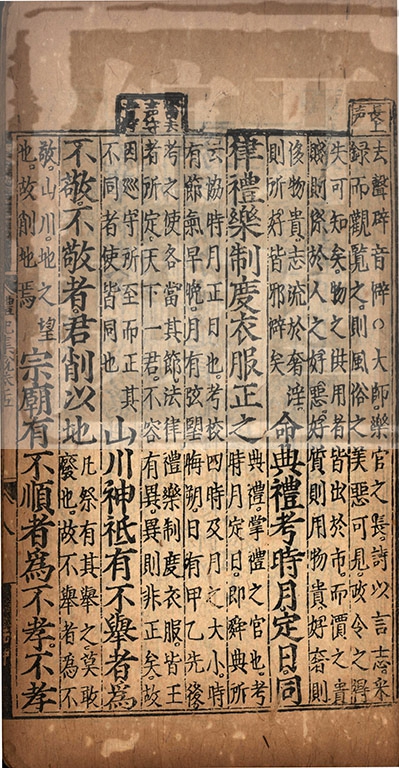 長上
声
去聲辟音僻○大師樂官之長詩以言志采
録而觀覽之則風俗之美惡可見政令之得
失可知矣物之供用者皆出於市而價之貴
賤則係於人之好惡好質則用物貴好奢則
侈物貴志流於奢淫
則所好皆邪辟矣
命典禮考時月定日同
律禮樂制度衣服正之
典禮掌禮之官也考
時月定日即舜典所
云協時月正日也考校四時及月之大小時
有節氣早晚月有弦望晦朔日有甲乙先後
考之使各當其節法律禮樂制度衣服皆王
者所定天下一君不容有異異則非正矣故
因巡守所至而正其
不同者使皆同也
山川神祇有不舉者為
不敬不敬者君削以地
凡祭有其舉之莫敢
廢也故不舉者為不
敬山川地之望
也故削地焉
宗廟有不順者為不孝不孝
八